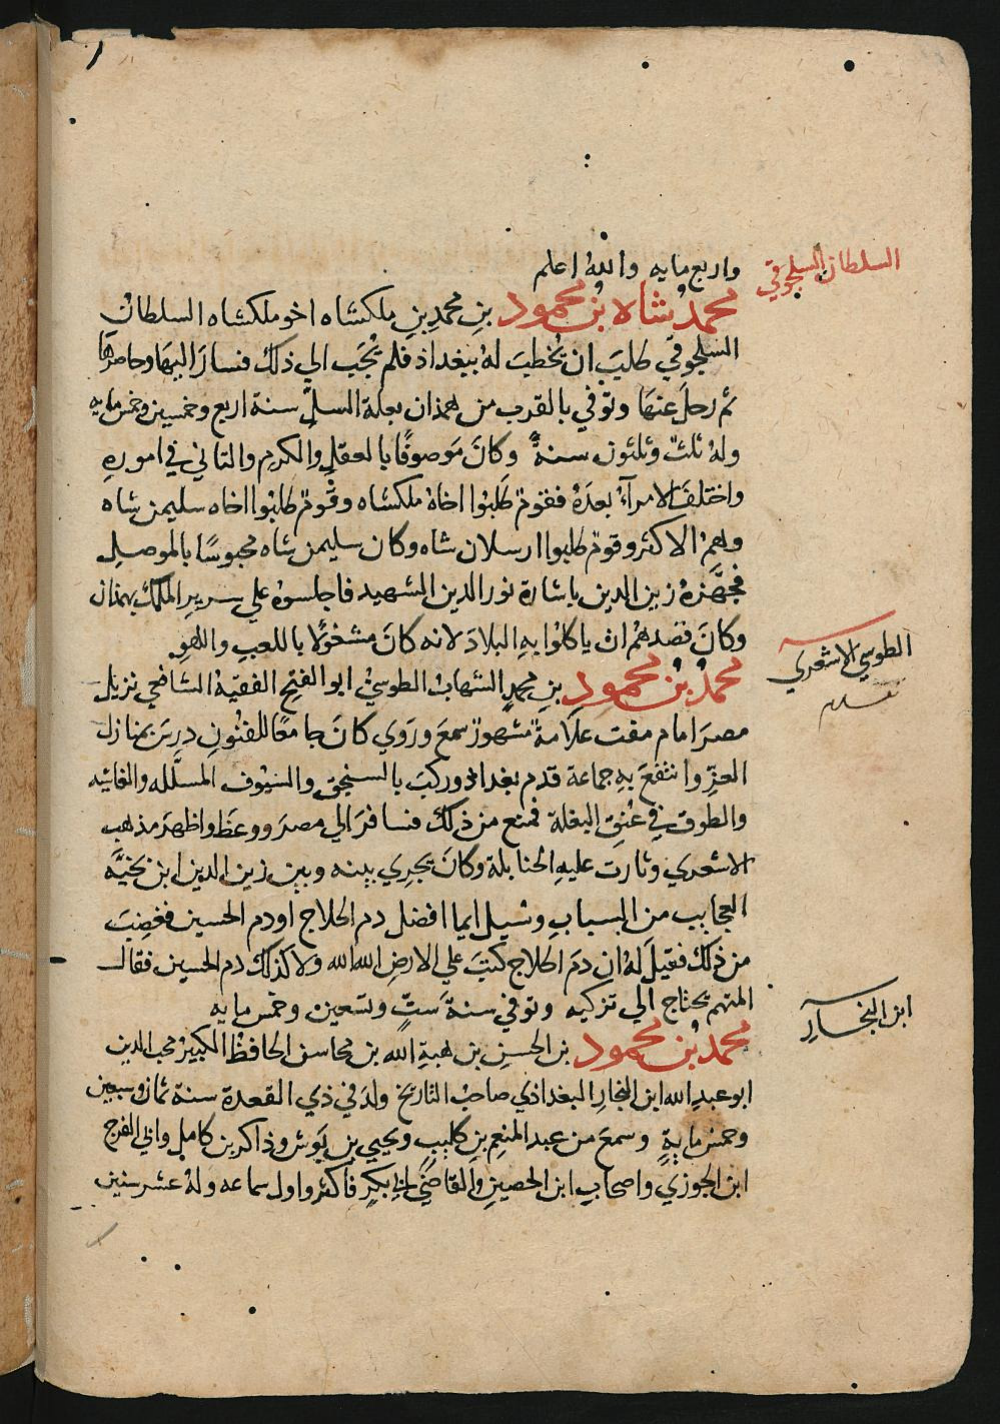 واربع مايه والله اعلم
السلطان السلجوقي
محمد شاه بن محمود بن محمد بن ملكشاه اخو ملكشاه السلطان
السلجوقي طلب ان يخطب له ببغداذ فلم يجب الي ذلك فسار اليها وحاصرها
ثم رحل عنها وتوفي بالقرب من همذان بعلة السل سنة اربع وخمسين وخمس مايه
وله ثلث وثلثون سنة وكان موصوفا بالعقل والكرم والتاني في اموره
واختلف الامرآء بعده فقوم طلبوا اخاه ملكشاه وقوم طلبوا اخاه سليمن شاه
وهم الاكثر وقوم طلبوا ارسلان شاه وكان سليمن شاه محبوسا بالموصل
فجهزه زين الدين باشارة نور الدين الشهيد فاجلسوه علي سرير الملك بهمذان
وكان قصدهم ان ياكلوا به البلاد لانه كان مشغولا باللعب واللهو
الطوسي الاشعري
محمد بن محمود بن محمد الشهاب الطوسي ابو الفتح الفقيه الشافعي نزيل
مصر امام مفت علامة مشهور سمع وروي كان جامعا للفنون درس بمنازل
العز وانتفع به جماعة قدم بغداذ وركب بالسنجق والسيوف المسلله والغاشيه
والطوق في عنق البغلة فمنع من ذلك فسافر الي مصر ووعظ واظهر مذهب
الاشعري وثارت عليه الحنابلة وكان يجري بينه وبين زين الدين ابن نجيه
العجايب من السباب وسيل ايما افضل دم الحلاج او دم الحسين فغضب
من ذلك فقيل له ان دم الحلاج كتب علي الارض الله الله ولا كذلك دم الحسين فقال
المتهم يحتاج الي تزكيه وتوفي سنة ست وتسعين وخمس مايه
ابن النجار
محمد بن محمود بن الحسن بن هبة الله بن محاسن الحافظ الكبير محب الدين
ابو عبد الله ابن النجار البغداذي صاحب التاريخ ولد في ذي القعدة سنة ثمان وسبعين
وخمس ماية وسمع من عبد المنعم بن كليب ويحيي بن بوش وذاكر بن كامل وابي الفرج
ابن الجوزي واصحاب ابن الحصين والقاضي ابي بكر فاكثر واول سماعه وله عشر سنين